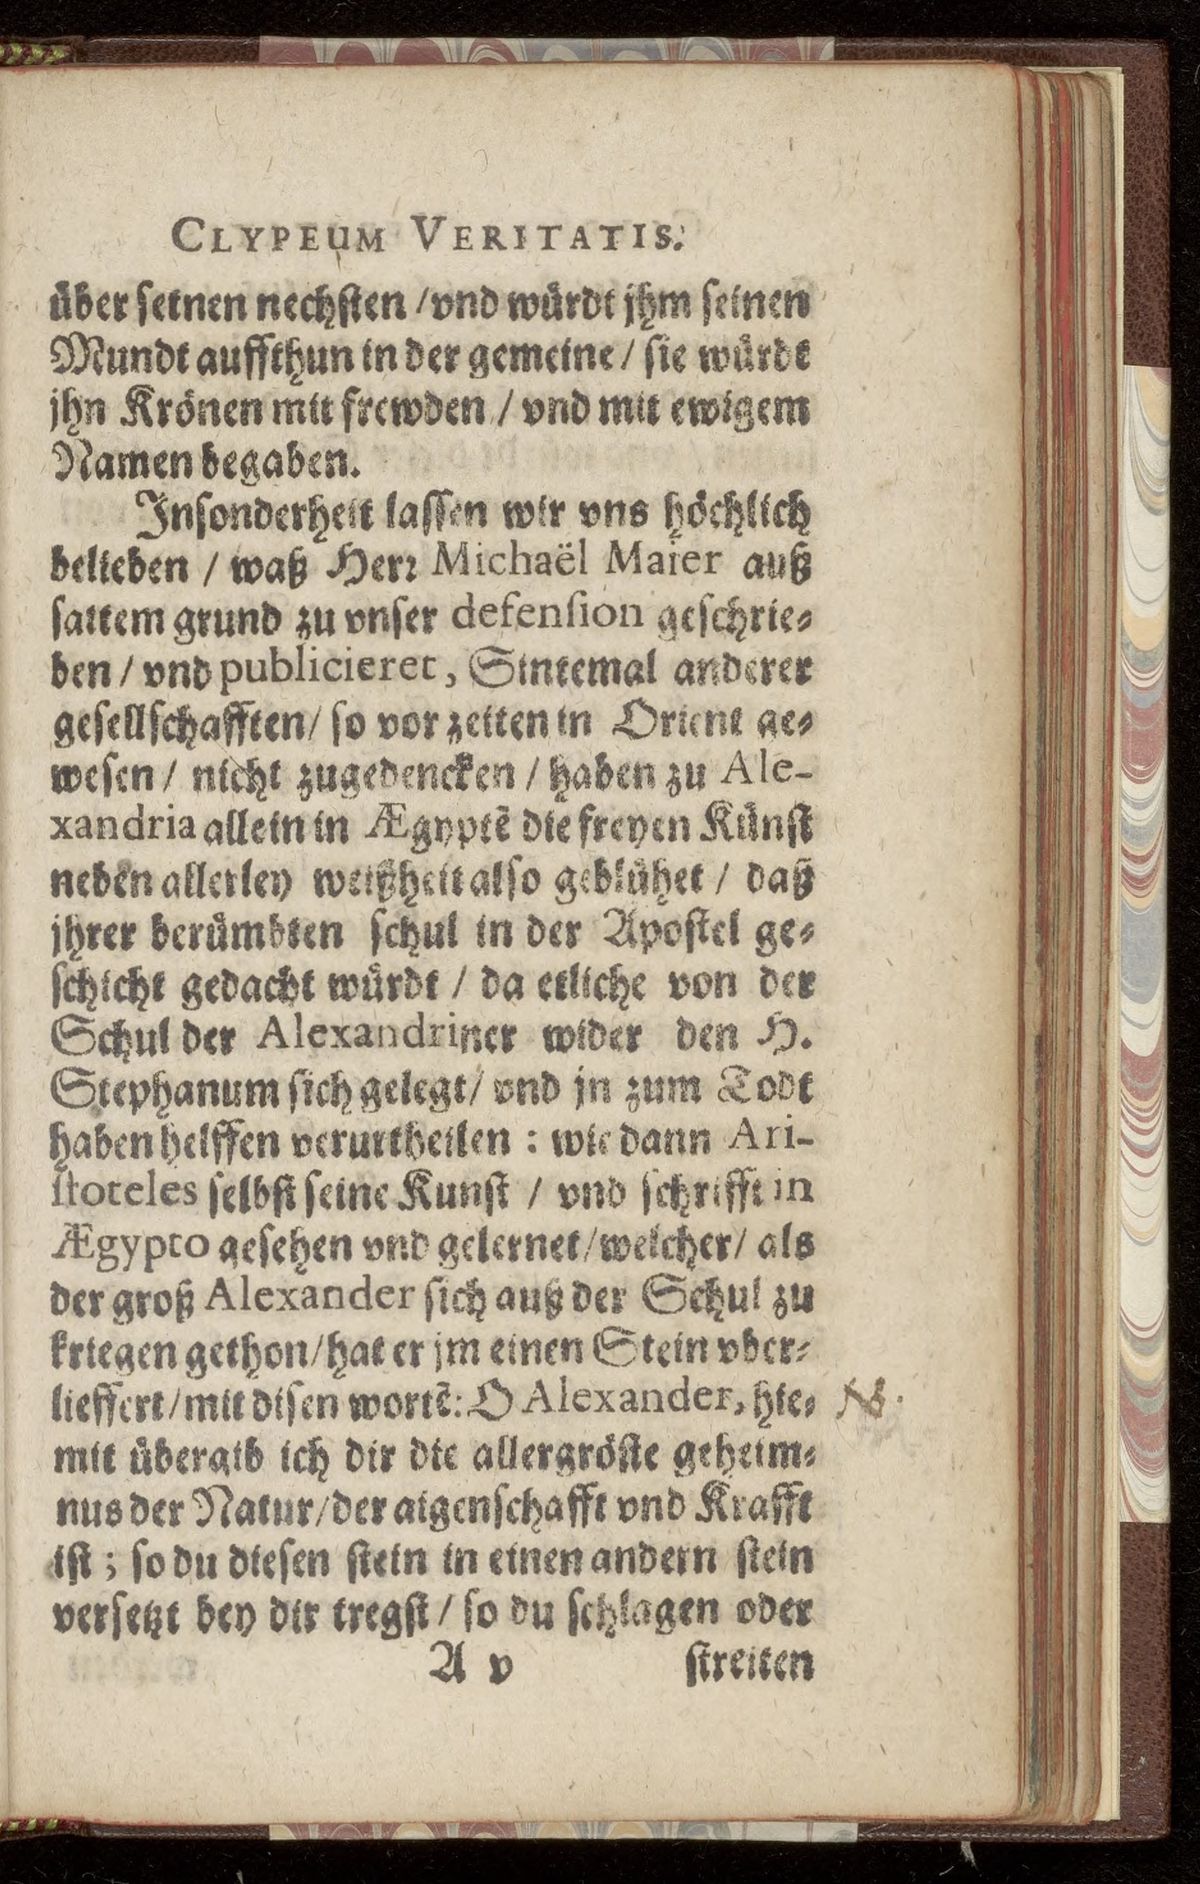 CLYPEUM VERITATIS.
über seinen nechsten / vnd würdt jhm seinen
Mundt auffthun in der gemeine / sie würdt
jhn Krönen mit frewden / vnd mit ewigem
Namen begaben.
Insonderheit lassen wir vns höchlich
belieben / waß Herr Michaël Maier auß
sattem grund zu vnser defension geschrie-
ben / vnd publicieret, Sintemal anderer
gesellschafften / so vor zeiten in Orient ge-
wesen / nicht zugedencken / haben zu Ale-
xandria allein in Ægyptē die freyen Künst
neben allerley weißheit also geblühet / daß
jhrer berümbten schul in der Apostel ge-
schicht gedacht würdt / da etliche von der
Schul der Alexandriner wider den H.
Stephanum sich gelegt / vnd jn zum Todt
haben helffen verurtheilen : wie dann Ari-
stoteles selbst seine Kunst / vnd schrifft in
Ægypto gesehen vnd gelernet / welcher / als
der groß Alexander sich auß der Schul zu
kriegen gethon / hat er jm einen Stein vber-
lieffert / mit disen wortē: O Alexander, hie-
NB.
mit übergib ich dir die allergröste geheim-
nus der Natur / der aigenschafft vnd Krafft
ist ; so du diesen stein in einen andern stein
versetzt bey dir tregst / so du schlagen oder
A v streiten